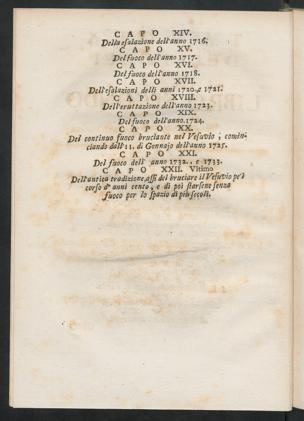 CAPO XIV.
Della esalazione dell'anno 1716.
CAPO XV.
Del fuoco dell'anno 1717.
CAPO XVI.
Del fuoco dell'anno 1718.
CAPO XVII.
Dell'esalazioni delli anni 1720. e 1721.
CAPO XVIII.
Dell'eruttazione dell'anno 1723.
CAPO XIX.
Del fuoco dell'anno. 1724.
CAPO XX.
Del continuo fuoco bruciante nel Vesuvio, comin-
ciando dall' 11. di Gennajo dell'anno 1725.
CAPO XXI.
Del fuoco dell' anno 1732., e 1733.
CAPO XXII. Vltimo
Dell'antica tradizione, assi del bruciare il Vesuvio pe'l
corso d' anni cento, e di poi starsene senza
fuoco per lo spazio di più secoli.